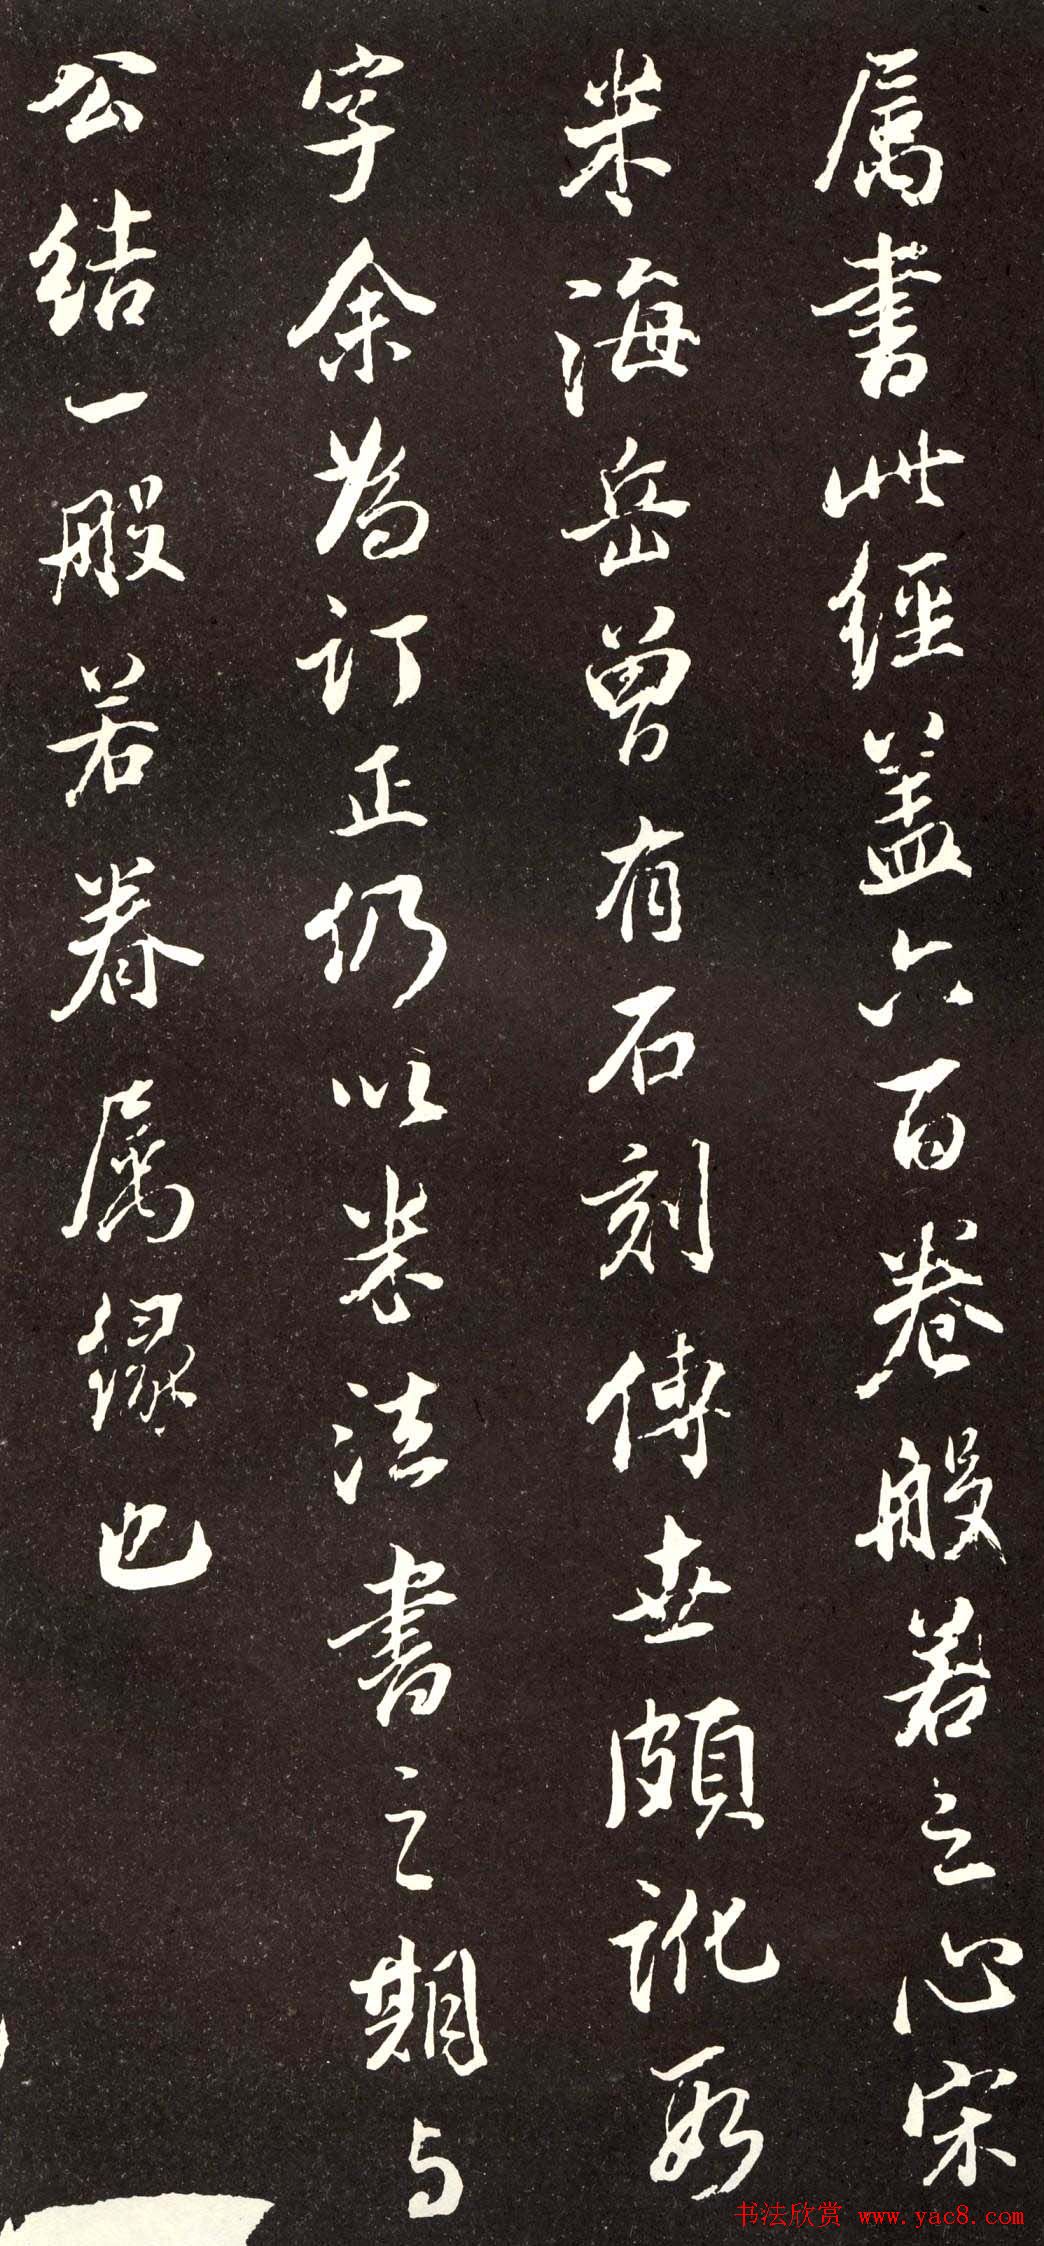 属書此經盖六百卷般若之心宋
米海岳曾有石刻傳世頗訛
字余為訂正仍以米法書之期与
公結一般若眷属緣也
书法欣赏 www.yac8.com